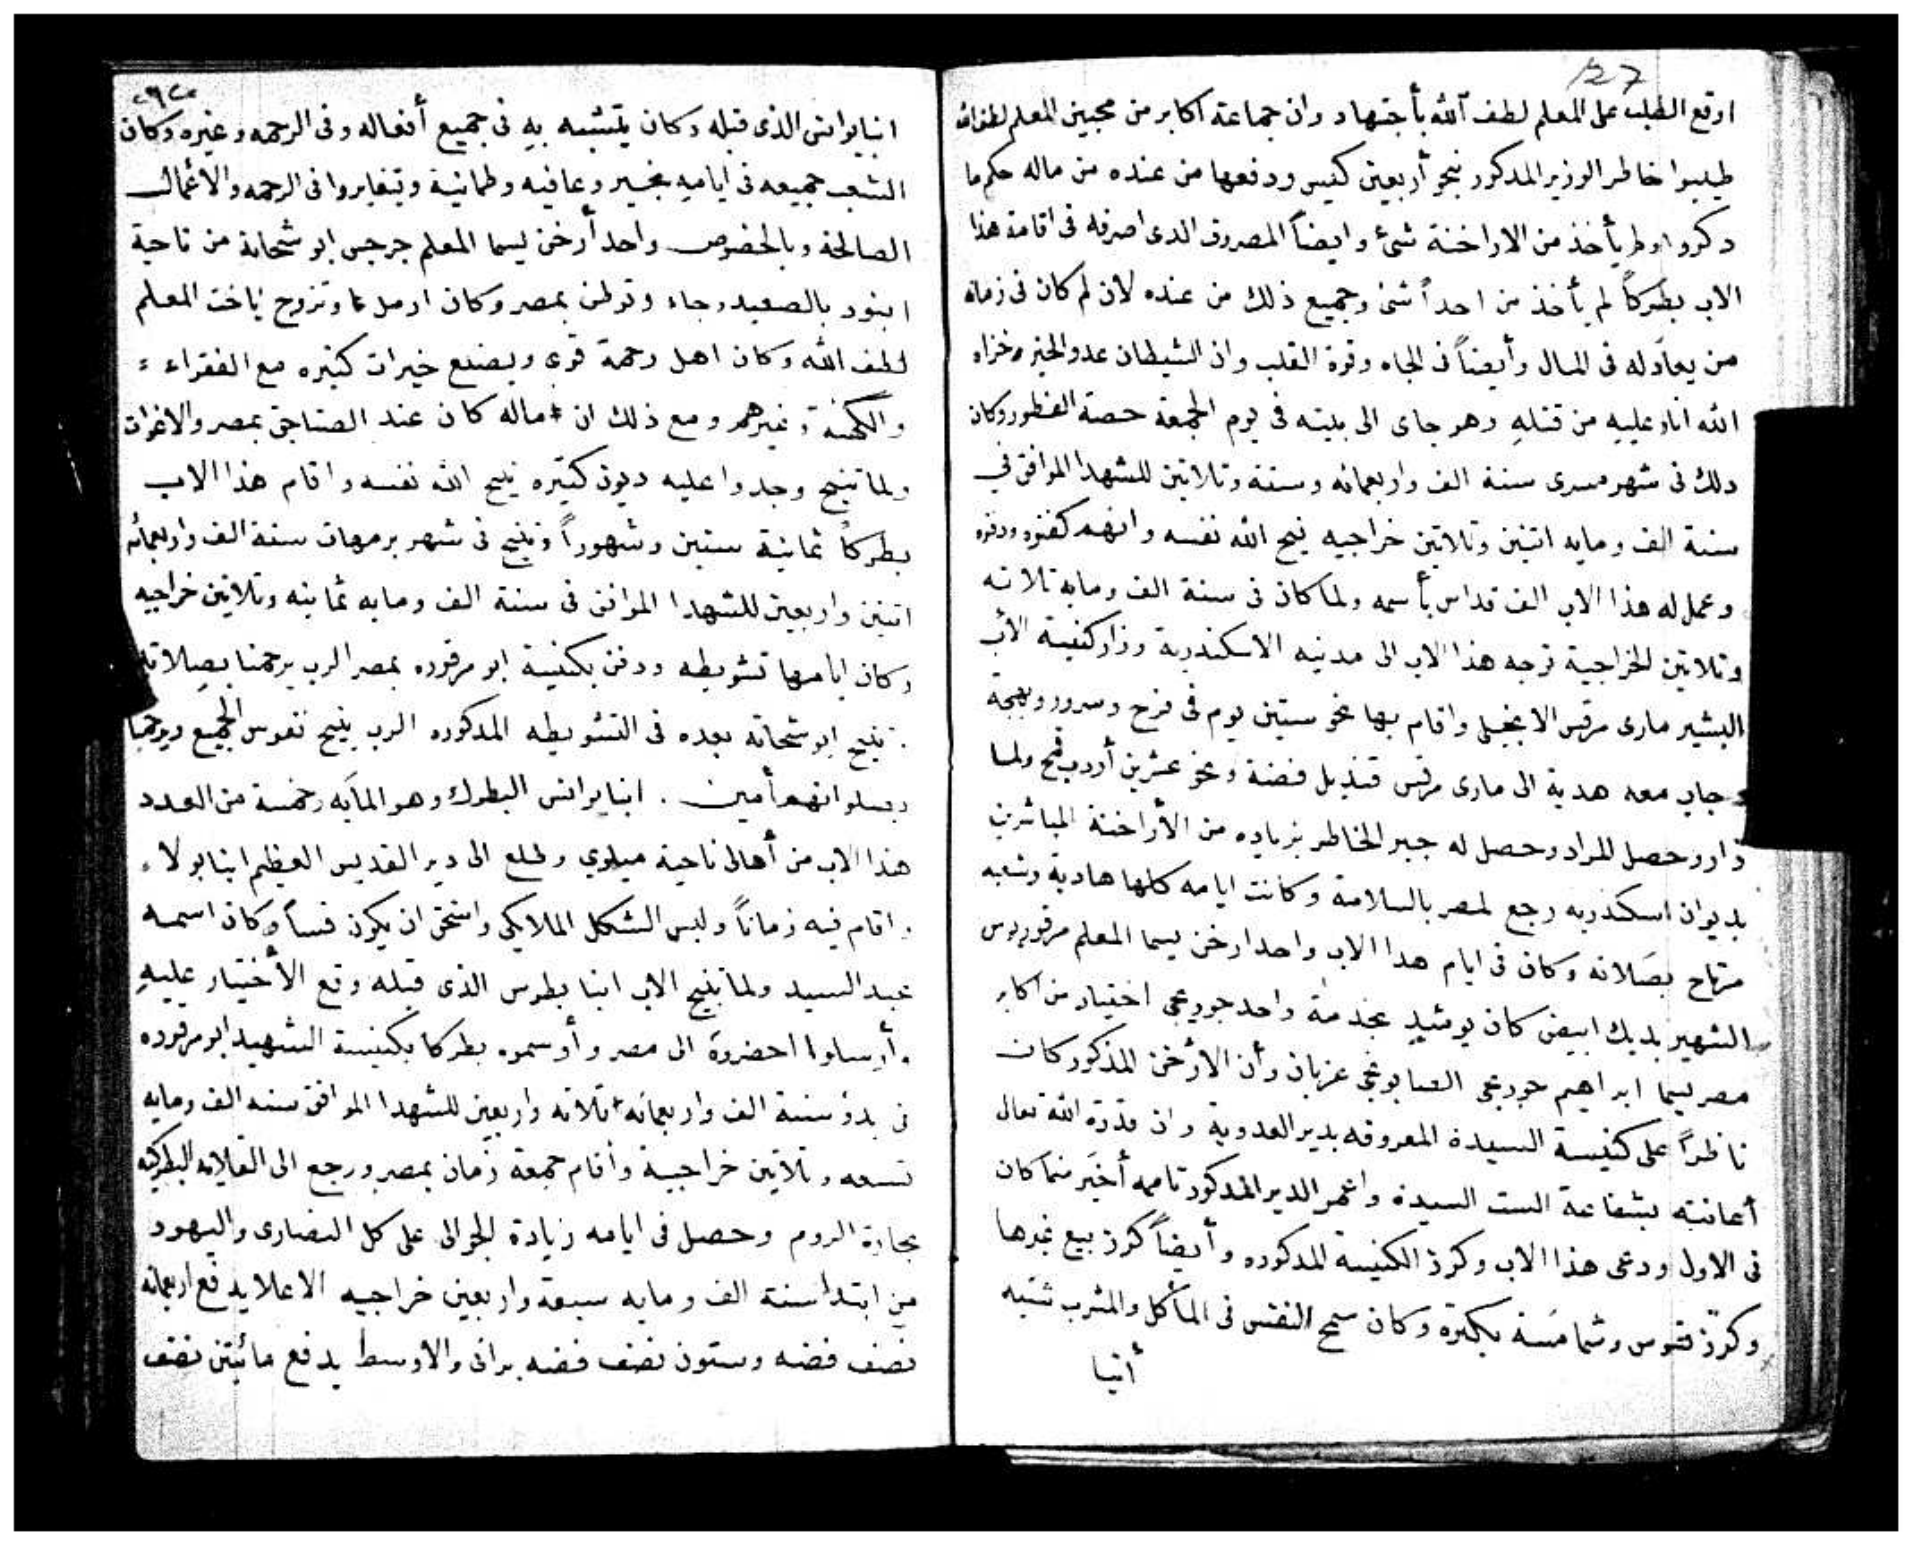 127
اوقع الطلب على المعلم لطف الله بأجتهاد وان جماعة اكابر من محبين المعلم لطف الله
طيبوا خاطر الوزير المذكور بنحو أربعين كيس ودفعها من عنده من ماله حكم ما
دكروا ولم يأخذ من الاراخنة شئ وايضاً المصروف الدى اصرفه فى اقامة هذا
الاب بطركاً لم يأخذ من احداً شئ وجميع ذلك من عنده لان لم كان فى زمانه
من يعادله فى المال وأيضاً فى الجاه وقوة القلب وان الشيطان عدو الخير وخزاه
الله اناد عليه من قتله وهو جاى الى بيته فى يوم الجمعة حصة الفطور وكان
دلك فى شهر مسرى سنة الف واربعمائه وستة وتلاتين للشهدا الموافق في
سنة الف ومايه اتنين وتلاتين خراجيه نيح الله نفسه وانهم كفنوه ودفنوه
وعمل له هذا الاب الف قداس بأسمه ولما كان فى سنة الف ومايه تلاته
وتلاتين الخراجية توجه هذا الاب الى مدنيه الاسكندرية وزار كنيسة الأب
البشير مارى مرقس الانجيلى واقام بها نحو ستين يوم فى فرح وسرور وبهجة
وجاب معه هدية الى مارى مرقس قنديل فضة ونحو عشرين أردب قمح ولما
زار وحصل المراد وحصل له جبر الخاطر بزياده من الأراخنة المباشرين
بديوان اسكندريه رجع لمصر بالسلامة وكانت ايامه كلها هادية وشعبه
مرتاح بصلاته وكان فى ايام هدا الاب واحد ارخن يسما المعلم مرقوريوس
الشهير بديك ابيض كان يومئيدٍ بخدمة واحد جوربجى اختيار من اكابر
مصر يسما ابراهيم جوربجى الصابونجى عزبان وأن الأرخن المذكور كان
ناظراً على كنيسة السيدة المعروفه بدير العدوية وان قدرة الله تعالى
أعانته بشفاعة الست السيدة واعمر الدير المذكور تامه أخير مما كان
فى الاول ودعى هذا الاب وكرز الكنيسة المذكوره وأيضاً كرز بيع غيرها
وكرز قسوس وشمامسة بكترة وكان سمح النفس فى المأكل والمشرب شبه
أنبا
انبا يوانس الذى قبله وكان يتشبه بهِ فى جميع أفعاله وفى الرحمه وغيره وكان
الشعب جميعه فى ايامهِ بخير وعافيه وطمانية وتغايروا فى الرحمه والاعمال
الصالحة وبالخصوص واحد أرخن يسما المعلم جرجس ابو شحاتة من ناحية
ابنود بالصعيد وجاء وتوطن بمصر وكان ارمل وتزوج باخت المعلم
لطف الله وكان اهل رحمة قوى ويصنع خيرات كتيره مع الفقراء
والكهنة وغيرهم ومع ذلك ان ماله كان عند الصناجق بمصر والاغوات
ولما تنيح وجدوا عليه ديون كتيره نيح الله نفسه واقام هذا الاب
بطركاً ثمانية سنين وشهوراً وتنيح فى شهر برمهات سنة الف واربعمائه
اتنين واربعين للشهدا الموافق فى سنة الف ومايه ثمانيه وتلاتين خراجيه
وكان ايامها تشويطه ودفن بكنيسة ابو مرقوره بمصر الرب يرحمنا بصلاته
تنيح ابو شحاته بعده فى التشويطه المذكوره الرب ينيح نفوس الجميع ويرحمنا
بصلواتهم أمين . انبا يوانس البطرك وهو المأيه وخمسة من العدد
هذا الاب من أهالى ناحية ميلوي وطلع الى دير القديس العظيم انبا بولا
واقام فيه زماناً ولبس الشكل الملايكى واستحق ان يكون قساً وكان اسمه
عبد السيد ولما تنيح الاب انبا بطرس الذى قبله وقع الأختيار عليهِ
وأرسلوا احضروة الى مصر وأوسموه بطركا بكنيسة الشهيد ابو مرقوره
فى بدو سنة الف واربعمائه تلاته واربعين للشهدا الموافق سنه الف ومايه
تسعه وتلاتين خراجية وأقام جمعة زمان بمصر ورجع الى القلايه البطركيه
بحارة الروم وحصل فى ايامه زيادة الجوالى على كل النصارى واليهود
من ابتدا سنة الف ومايه سبعة واربعين خراجيه الاعلا يدفع اربعمائه
نصف فضه وستون نصف فضه برانى والاوسط يدفع مائتين نصف